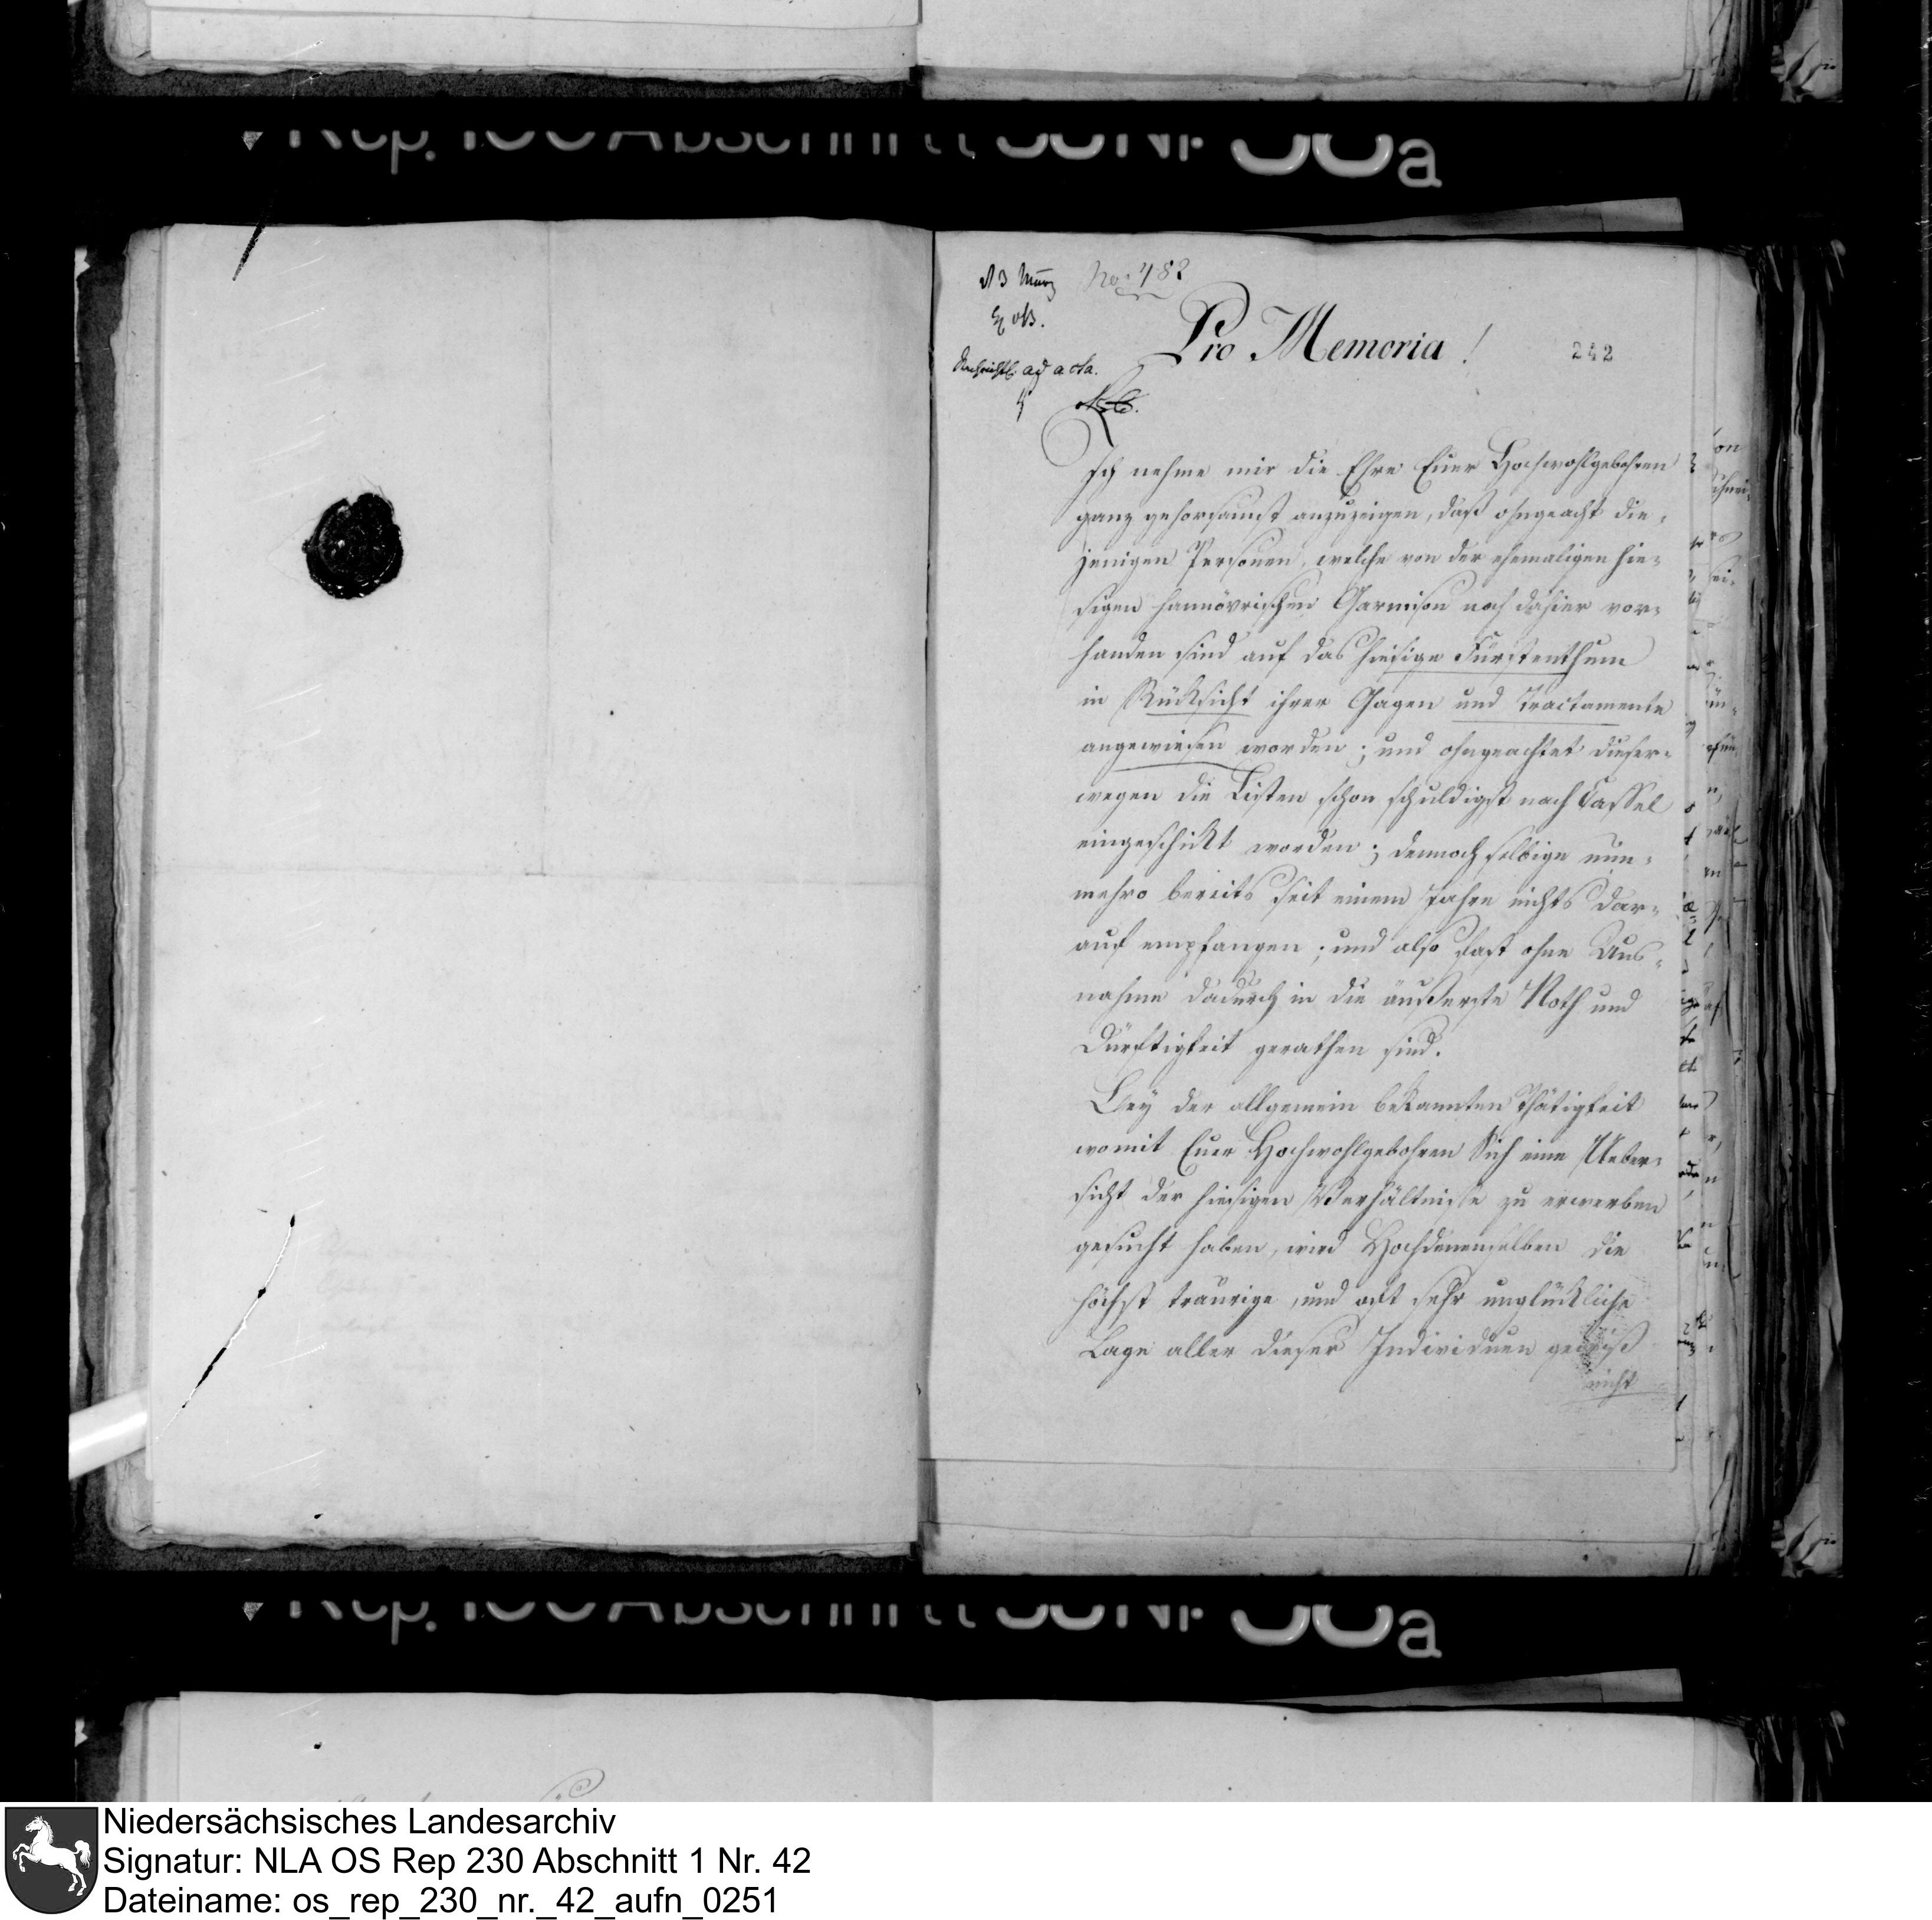 Rep. 100 Abschnitt 38 Nr. 38a
d 3 März No: 482
Pro Memoria!
242
ad acta.
Ich nehme mir die Ehre Euer Hochwohlgebohren
ganz gehorsamst anzuzeigen, daß ohngeacht die-
jenigen Personen, welche von der ehemaligen hie-
sigen hannövrischen Garnison noch dahier vor-
handen sind auf das hiesige Fürstenthum
in Rüksicht ihrer Gagen und Tractamente
angewiesen worden; und ohngeachtet dieser-
wegen die Listen schon schuldigst nach Cassel
eingeschikt worden; dennoch selbige nun-
mehro bereits seit einem Jahre nichts dar-
auf empfangen; und also fast ohne Aus-
nahme dadurch in die äußerste Noth und
Dürftigkeit gerathen sind.
Bey der allgemein bekannten Thätigkeit
womit Euer Hochwohlgebohren Sich eine Ueber-
sicht der hiesigen Verhältniße zu erwerben
gesucht haben, wird Hochdenenselben die
höchst traurige, und oft sehr unglükliche
Lage aller dieser Individuen gewiß
nicht
Niedersächsisches Landesarchiv
Signatur: NLA OS Rep 230 Abschnitt 1 Nr. 42
Dateiname: os_rep_230_nr._42_aufn_0251